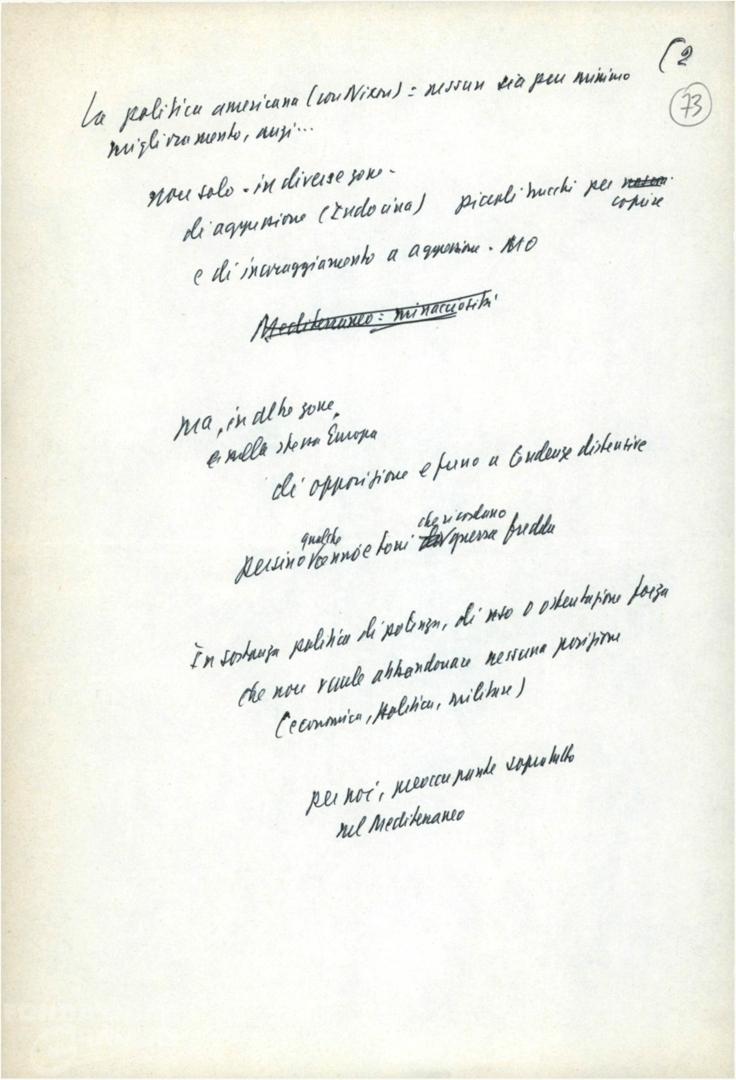 (2
73
La politica americana (con Nixon) = nessun sia pur minimo
miglioramento, anzi...
non solo - in diverse zone -
di aggressione (Indocina) piccoli trucchi per
coprire
e di incoraggiamento a aggressione - MO
Mediterraneo = minacciosità
ma, in altre zone,
e nella stessa Europa
di opposizione e freno a tendenze distensive
qualche che ricordano
persino toni guerra fredda
In sostanza politica di potenza, di uso o ostentazione forza
che non vuole abbandonare nessuna posizione
(economica, politica, militare)
per noi, preoccupante sopratutto
nel Mediterraneo